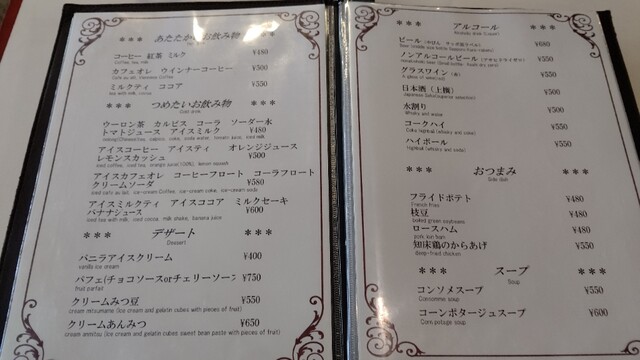 *** あたたかいお飲み物 ***
コーヒー 紅茶 ミルク ¥480
Coffee, tea, milk
カフェオレ ウインナーコーヒー ¥500
Cafe au lait, Viennese Coffee
ミルクティ ココア ¥550
tea with milk, cocoa
*** つめたいお飲み物 ***
Cold drink
ウーロン茶 カルピス コーラ ソーダー水
トマトジュース アイスミルク ¥480
アイスコーヒー アイスティ オレンジジュース
レモンスカッシュ ¥500
iced coffee, iced tea, orange juice(100%), lemon squash
アイスカフェオレ コーヒーフロート コーラフロート
クリームソーダ ¥580
iced cafe au lait, ice-cream Coffee, ice-cream coke, ice-cream soda
アイスミルクティ アイスココア ミルクセーキ
バナナジュース ¥600
iced tea with milk, iced cocoa, milk shake, banana juice
*** デザート ***
Dessert
バニラアイスクリーム ¥400
vanilla ice cream
パフェ(チョコソースorチェリーソース ¥750
fruit parfait
クリームみつ豆 ¥550
cream mitsumame (ice cream and gelatin cubes with pieces of fruit)
クリームあんみつ ¥650
cream anmitsu (ice cream and gelatin cubes sweet bean paste with pieces of fruit)
*** アルコール ***
ビール ¥680
ノンアルコールビール ¥550
グラスワイン(赤) ¥550
A glass of wine(red)
日本酒(上撰) ¥500
水割り ¥500
Whisky and water
コークハイ ¥550
Coke highball (whisky and soda)
ハイボール ¥550
highball (whisky and soda)
*** おつまみ ***
Side dish
フライドポテト ¥480
french fries
枝豆 ¥480
boiled green soybeans
ロースハム ¥480
pork loin ham
知床鶏のからあげ ¥550
deep-fried chicken
*** スープ ***
Soup
コンソメスープ ¥550
Consomme soup
コーンポタージュスープ ¥600
Corn potage soup